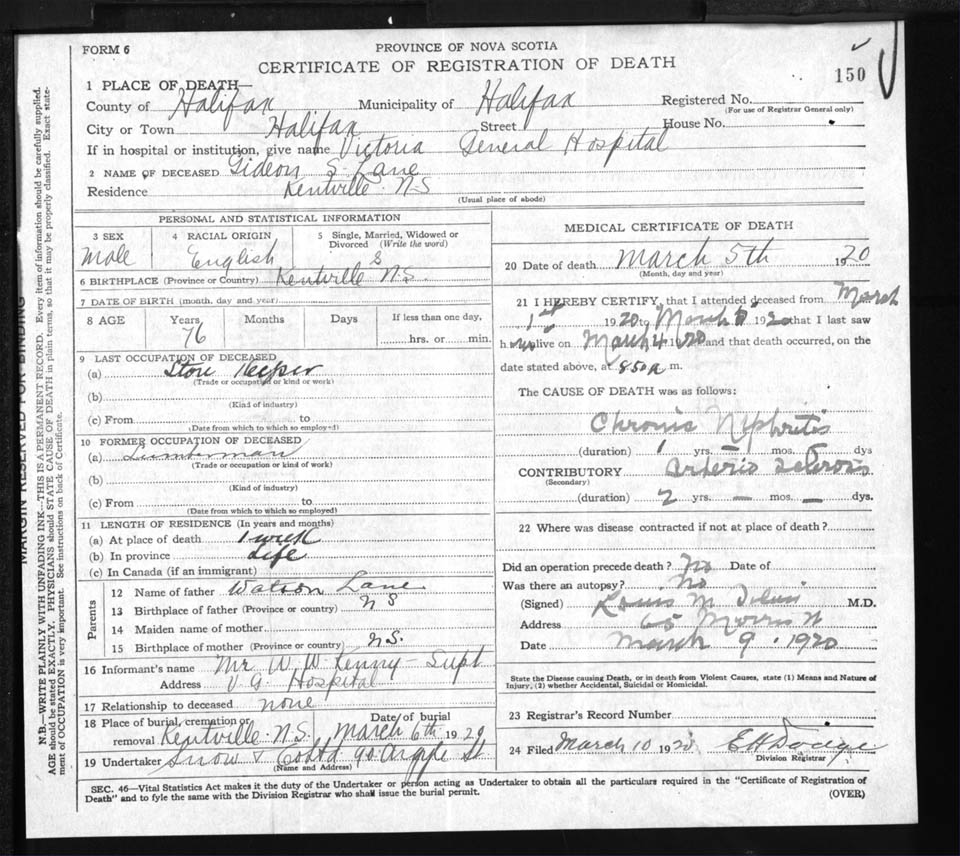 FORM 6
PROVINCE OF NOVA SCOTIA
CERTIFICATE OF REGISTRATION OF DEATH
150
1 PLACE OF DEATH—
County of Halifax Municipality of Halifax Registered No.
(For use of Registrar General only)
City or Town Halifax Street House No.
If in hospital or institution, give name Victoria General Hospital
2 NAME OF DECEASED Gideon S. Lane
Residence Kentville N.S
(Usual place of abode)
PERSONAL AND STATISTICAL INFORMATION
3 SEX Male
4 RACIAL ORIGIN English
5 Single, Married, Widowed or Divorced (Write the word) S
6 BIRTHPLACE (Province or Country) Kentville N.S.
7 DATE OF BIRTH (month, day and year)
8 AGE Years 76 Months Days If less than one day, hrs. or min.
9 LAST OCCUPATION OF DECEASED
(a) Store Keeper
(Trade or occupation or kind or work)
(b)
(Kind of industry)
(c) From to
(Date from which to which so employed)
10 FORMER OCCUPATION OF DECEASED
(a) Lumberman
(Trade or occupation or kind of work)
(b)
(Kind of industry)
(c) From to
(Date from which to which so employed)
11 LENGTH OF RESIDENCE (In years and months)
(a) At place of death 1 week
(b) In province Life
(c) In Canada (if an immigrant)
Parents
12 Name of father Watson Lane
13 Birthplace of father (Province or country) N S
14 Maiden name of mother
15 Birthplace of mother (Province or country) N.S.
16 Informant's name Mr W. W. Kenny - Supt
Address V. G. Hospital
17 Relationship to deceased none
18 Place of burial, cremation or removal Kentville N.S. Date of burial March 6th 1920
19 Undertaker Snow & Co Ltd 90 Argyle St
(Name and Address)
MEDICAL CERTIFICATE OF DEATH
20 Date of death March 5th 1920
(Month, day and year)
21 I HEREBY CERTIFY, that I attended deceased from March
1st 1920 to March 5 1920 that I last saw
him alive on March 4 1920 and that death occurred, on the
date stated above, at 8.50 a m.
The CAUSE OF DEATH was as follows:
Chronic Nephritis
(duration) 1 yrs. – mos. – dys
CONTRIBUTORY Arterio Sclerosis
(Secondary)
(duration) 2 yrs. — mos. — dys.
22 Where was disease contracted if not at place of death?
Did an operation precede death? No Date of
Was there an autopsy? No
(Signed) Louis M M.D.
Address 65 Morris St
Date March 9 1920
State the Disease causing Death, or in death from Violent Causes, state (1) Means and Nature of
Injury, (2) whether Accidental, Suicidal or Homicidal.
23 Registrar's Record Number
24 Filed March 10 1920
Division Registrar
SEC. 46—Vital Statistics Act makes it the duty of the Undertaker or person acting as Undertaker to obtain all the particulars required in the "Certificate of Registration of
Death" and to fyle the same with the Division Registrar who shall issue the burial permit.
(OVER)
MARGIN RESERVED FOR BINDING
N.B.—WRITE PLAINLY WITH UNFADING INK—THIS IS A PERMANENT RECORD. Every item of information should be carefully supplied.
AGE should be stated EXACTLY. PHYSICIANS should STATE CAUSE OF DEATH in plain terms, so that it may be properly classified. Exact state-
ment of OCCUPATION is very important. See instructions on back of Certificate.